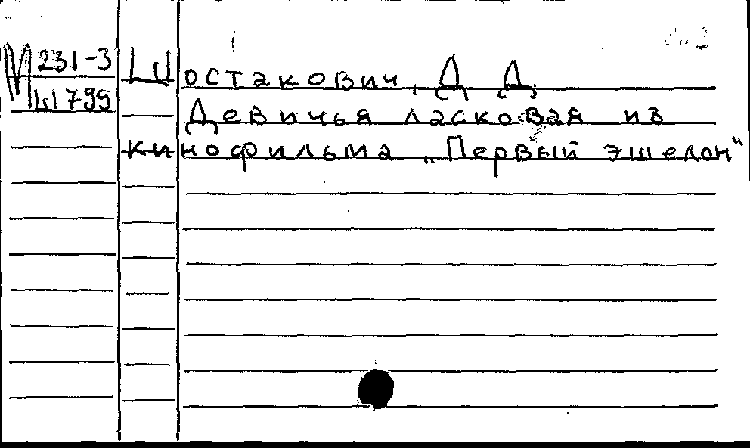 М 231-3 Шостакович, Д Д
Ш 799 Девичья ласковая из
кинофильма „Первый эшелон"